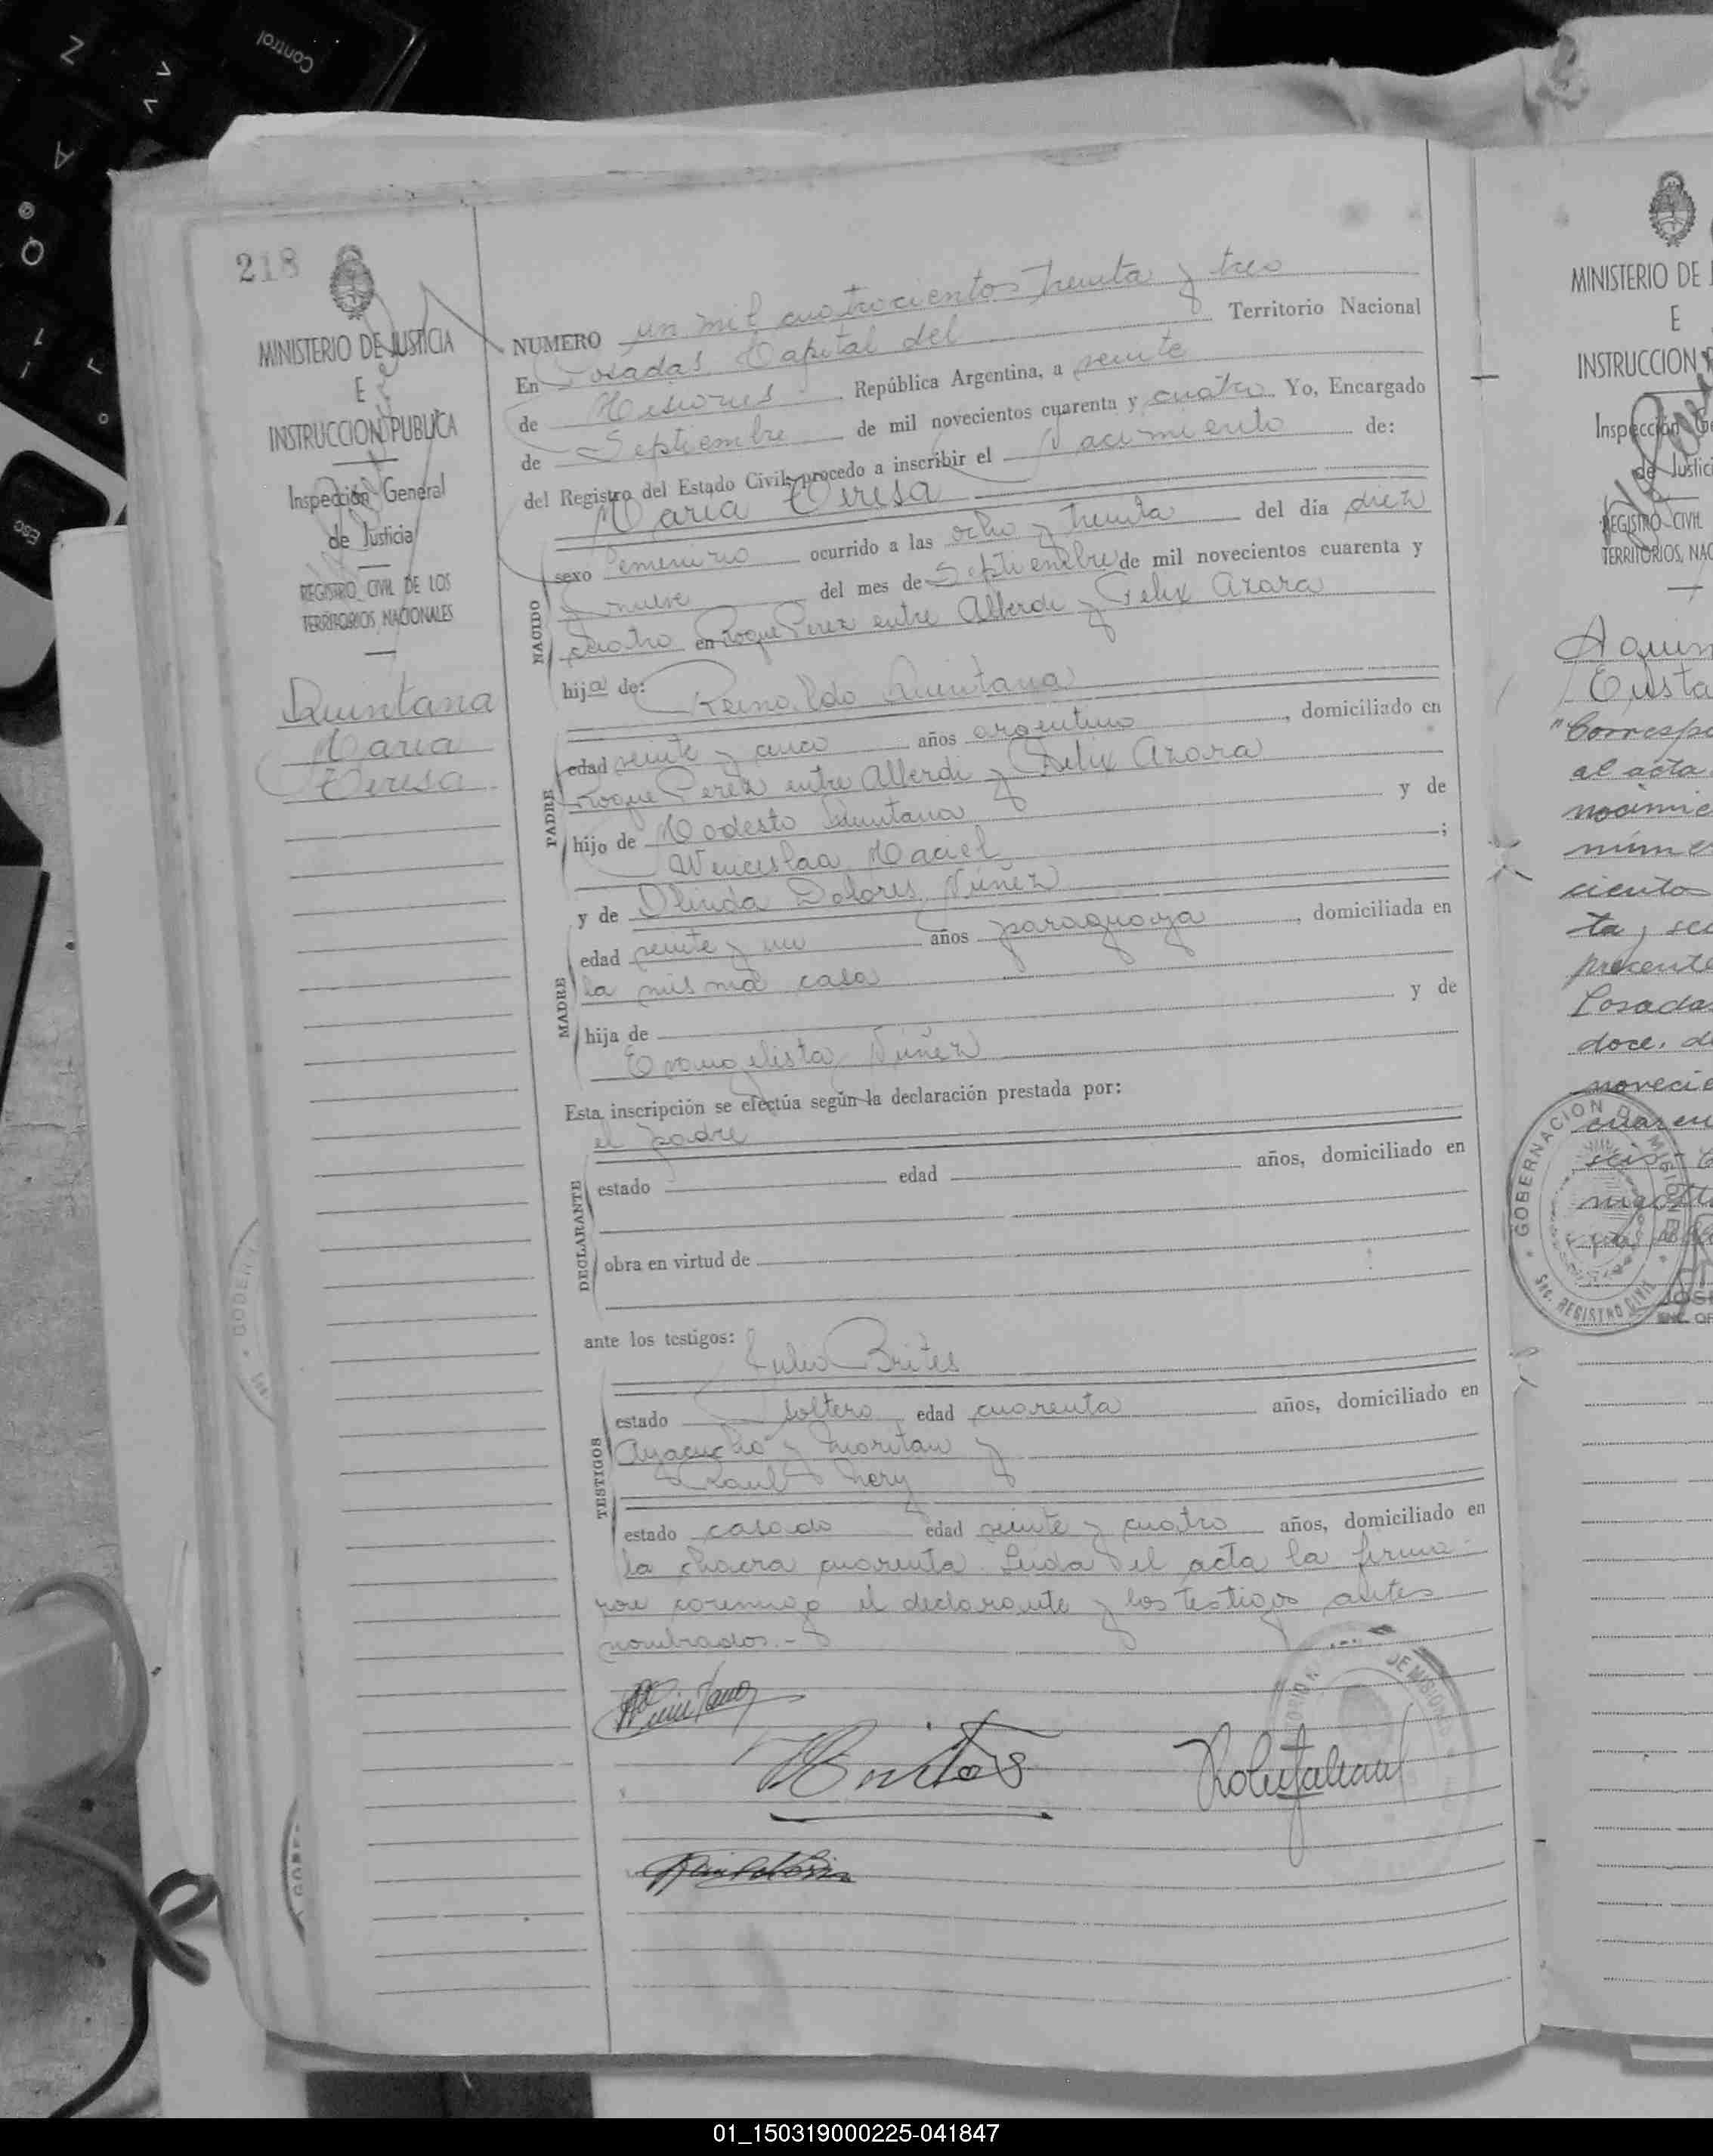 Control
Z
A
Q
Esc
218
MINISTERIO DE JUSTICIA
E
INSTRUCCION PUBLICA
Inspección General
de Justicia
REGISTRO CIVIL DE LOS
TERRITORIOS NACIONALES
Quintana
Maria
Teresa
NUMERO un mil cuatrocientos treinta y tres
En Posadas, Capital del Territorio Nacional
de Misiones, República Argentina, a veinte
de Septiembre de mil novecientos cuarenta y cuatro Yo, Encargado
del Registro del Estado Civil, procedo a inscribir el Nacimiento de:
Maria Teresa
NACIDO
sexo femenino ocurrido a las ocho y treinta del día diez
y nueve del mes de Septiembre de mil novecientos cuarenta y
cuatro en Roque Perez entre Alberdi y Felix Azara
hija de: Reinaldo Quintana
PADRE
edad veinte y cinco años argentino, domiciliado en
Roque Perez entre Alberdi y Felix Azara
hijo de Modesto Quintana y de
Wenceslaa Maciel;
y de Olinda Dolores Núñez
MADRE
edad veinte y un años paraguaya, domiciliada en
la misma casa
hija de y de
Evangelista Núñez
Esta inscripción se efectúa según la declaración prestada por:
el padre
DECLARANTE
estado edad años, domiciliado en
obra en virtud de
ante los testigos:
Julio Brites
TESTIGOS
estado soltero edad cuarenta años, domiciliado en
Ayacucho y Moritan y
Raul Nery
estado casado edad veinte y cuatro años, domiciliado en
la chacra cuarenta. Leída el acta la firma-
ron conmigo el declarante y los testigos antes
nombrados.-
DE MISIONES
RQuintana
Brites
MINISTERIO DE J
E
INSTRUCCION P
Inspección Ge
de Justici
REGISTRO CIVIL
TERRITORIOS NAC
Aquin
Eusta
"Correspo
al acta
nocimie
númer
cientos
ta, sec
presente
Posadas
doce, de
novecie
cuaren
seis
GOBERNACION DE MISIONES
SEC. REGISTRO CIVIL
JOSE
ENC. OF
01_150319000225-041847